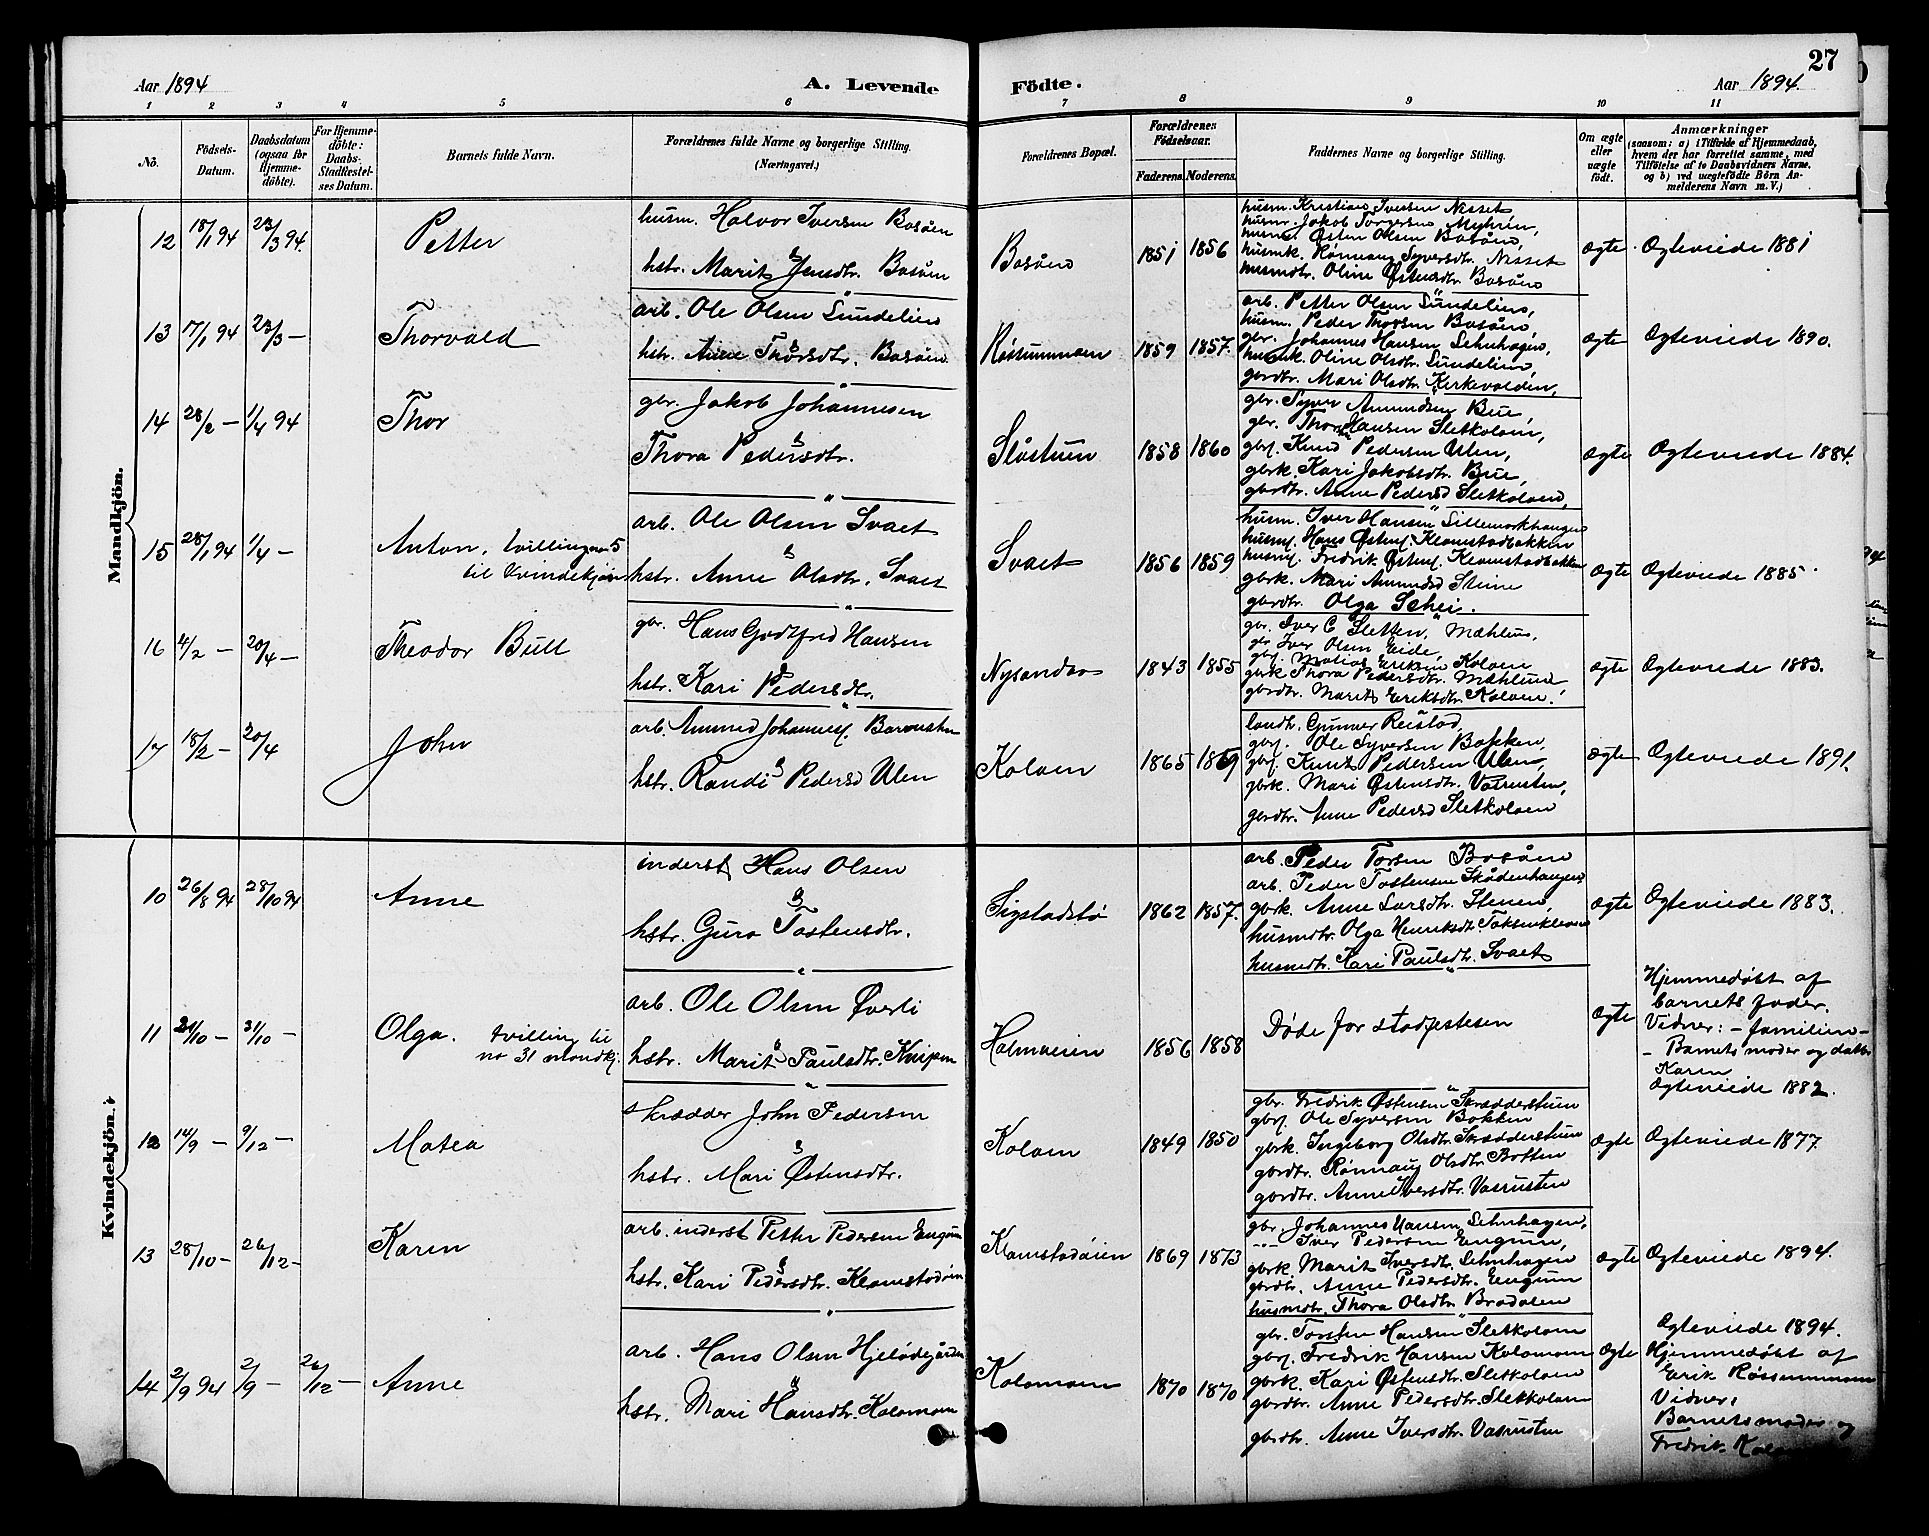 27
Aar 1894
A. Levende
Födte.
Aar 1894.
1 2 3 4 5 6 7 8 9 10 11
No.
Födsels-Datum.
Daabsdatum (ogsaa for Hjemme-döbte).
For Hjemme-döbte: Daabs-Stadfæstel-ses Datum.
Barnets fulde Navn.
Forældrenes fulde Navne og borgerlige Stilling. (Næringsvei.)
Forældrenes Bopæl.
Forældrenes Födselsaar.
Faderens. Moderens.
Faddernes Navne og borgerlige Stilling.
Om ægte eller uægte födt.
Anmærkninger
(saasom: a) i Tilfælde af Hjemmedaab,
hvem der har forrettet samme, med
Tilföielse af to Daabsvidners Navne.
og b) ved uægtefödte Börn An-
melderens Navn m. V.)
Mandkjön.
12 18/1 94 23/3 94.
Petter
husm. Halvor Iversen Bosøen
&
hstr. Marit Jensdtr. Bosøen
Bosøen
1851 1856
husm. Kristian Iversen Nisset
husm. Jakob Torgersen Myhren,
husm. Østen Olsen Bosøen,
husmk. Rønnaug Syversdtr. Nisset
husmdtr. Oline Østensdtr Bosøen
ægte Ægteviede 1881
13 17/1 94 23/3 —
Thorvald
arb. Ole Olsen Sundelien
&
hstr. Anne Thorsdtr. Bosøen
Røssummoen
1859 1857.
arb. Petter Olsen Sundelien,
husm. Peder Thorsen Bosøen,
gbr. Johannes Hansen Lehnhagen,
husmk. Oline Olsdtr. Sundelien,
gbrdtr. Mari Olsdtr. Kirkevolden,
ægte Ægteviede 1890.
14 28/2 — 1/4 94
Thor
gbr. Jakob Johannesen
&
Thora Pedersdtr.
Slåstuen
1858 1860
gbr. Syver Amundsen Bue,
gbr. Thor Hansen Sletkolven,
gbrs. Knud Pedersen Ulen,
gbrk. Kari Jakobsdtr. Bue,
gbrdtr. Anne Pedersd Sletkolven,
ægte Ægteviede 1884.
15 28/1 94 1/4 —
Anton, tvilling no 5
til Kvindekjøn
arb. Ole Olsen Svaet
&
hstr. Anne Olsdtr. Svaet
Svaet
1856 1859
husm. Iver Hansen Sillemorkhaugen
husms. Hans Østens. Klomstadbakken
husms. Fredrik Østens. Klomstadbakken
gbrk. Mari Amundsd Stene
gbrdtr. Olga Schei.
ægte Ægteviede 1885
16 4/2 — 20/4 —
Theodor Bull
gbr. Hans Godtfred Hansen
&
hstr. Kari Pedersdtr.
Nysandan
1843 1855
gbr. Iver C Sletten, Mæhlum,
gbr Iver Olsen Eide,
gbs. Matias Eriksen Kolven
gbrk Thora Pedersdtr. Mæhlum
gbrdtr. Marit Eriksdtr. Kolven.
ægte Ægteviede 1883.
17 18/2 — 20/4
John
arb. Ammund Johanness.
&
hstr. Randi Pedersd Ulen
Kolven
1865 1869
landh. Gunner Reistad,
gbrs. Ole Syversen Bakken,
gbrs. Knut Pedersen Ulen,
gbrk. Mari Østensdtr. Vasrusten,
gbrdtr. Anne Pedersd Sletkolven
ægte Ægteviede 1891.
Kvindekjön.
10 26/8 94 28/10 94
Anne
inderst Hans Olsen
&
hstr. Guro Tostensdtr.
Sigstadstø
1862 1857.
arb. Peder Torsen Bosøen
arb. Peder Tostensen Skådenhaugen
gbrk. Anne Larsdtr. Stenen,
husmdtr. Olga Henriksdtr. Toksenkleven
husmdtr. Kari Paulsdtr. Svaet
ægte Ægteviede 1883.
11 21/10 — 31/10 —
Olga. tvilling til
no 31 mandkj.
arb. Ole Olsen Øverli
&
hstr. Marit Paulsdtr. Knipen
Holmveien
1856 1858
Døde før stadfestesen
ægte
Hjemmedøbt af
barnets fader.
Vidner: – familien –
– Barnets moder og datter
Karen
Ægteviede 1882.
12 14/9 — 9/12 —
Matea
skrædder John Pedersen
&
hstr. Mari Østensdtr.
Kolven
1849 1850
gbr. Fredrik Østensen Skrædderstuen
gbrs. Ole Syversen Bakken
gbrk. Ingeborg Olsdtr. Skrædderstuen
gbrdtr. Rønnaug Olsdtr Botten
gbrdtr. Anne Iversdtr. Vasrusten
ægte Ægteviede 1877.
13 28/10 — 26/12 —
Karen
arb. inderst Petter Pedersen Engum
&
hstr. Kari Pedersdtr. Klomstadøien
Klomstadøien
1869 1873
gbr. Johannes Hansen Lehnhagen,
-.- Iver Pedersen Engum,
gbrk. Marit Iversdtr. Lehnhagen
gbrdtr. Anne Pedersdtr. Engum
husmdtr. Thora Olsdtr. Bradalen
ægte Ægteviede 1894.
14 2/9 94 2/9 — 26/12 —
Anne
arb. Hans Olsen Hjelødegården
&
hstr. Mari Hansdtr. Kolomoen
Kolomoen
1870 1870
gbr. Torsten Hansen Sletkolven
gbrs. Fredrik Hansen Kolomoen
gbrk. Kari Østensdtr. Sletkolven
gbrdtr. Anne Pedersdtr. Sletkolven
gbrdtr. Anne Iversdtr. Vasrusten
ægte
Ægteviede 1894.
Hjemmedøbt af
Erik Røssummoen
Vidner:
Barnets moder og
Fredrik